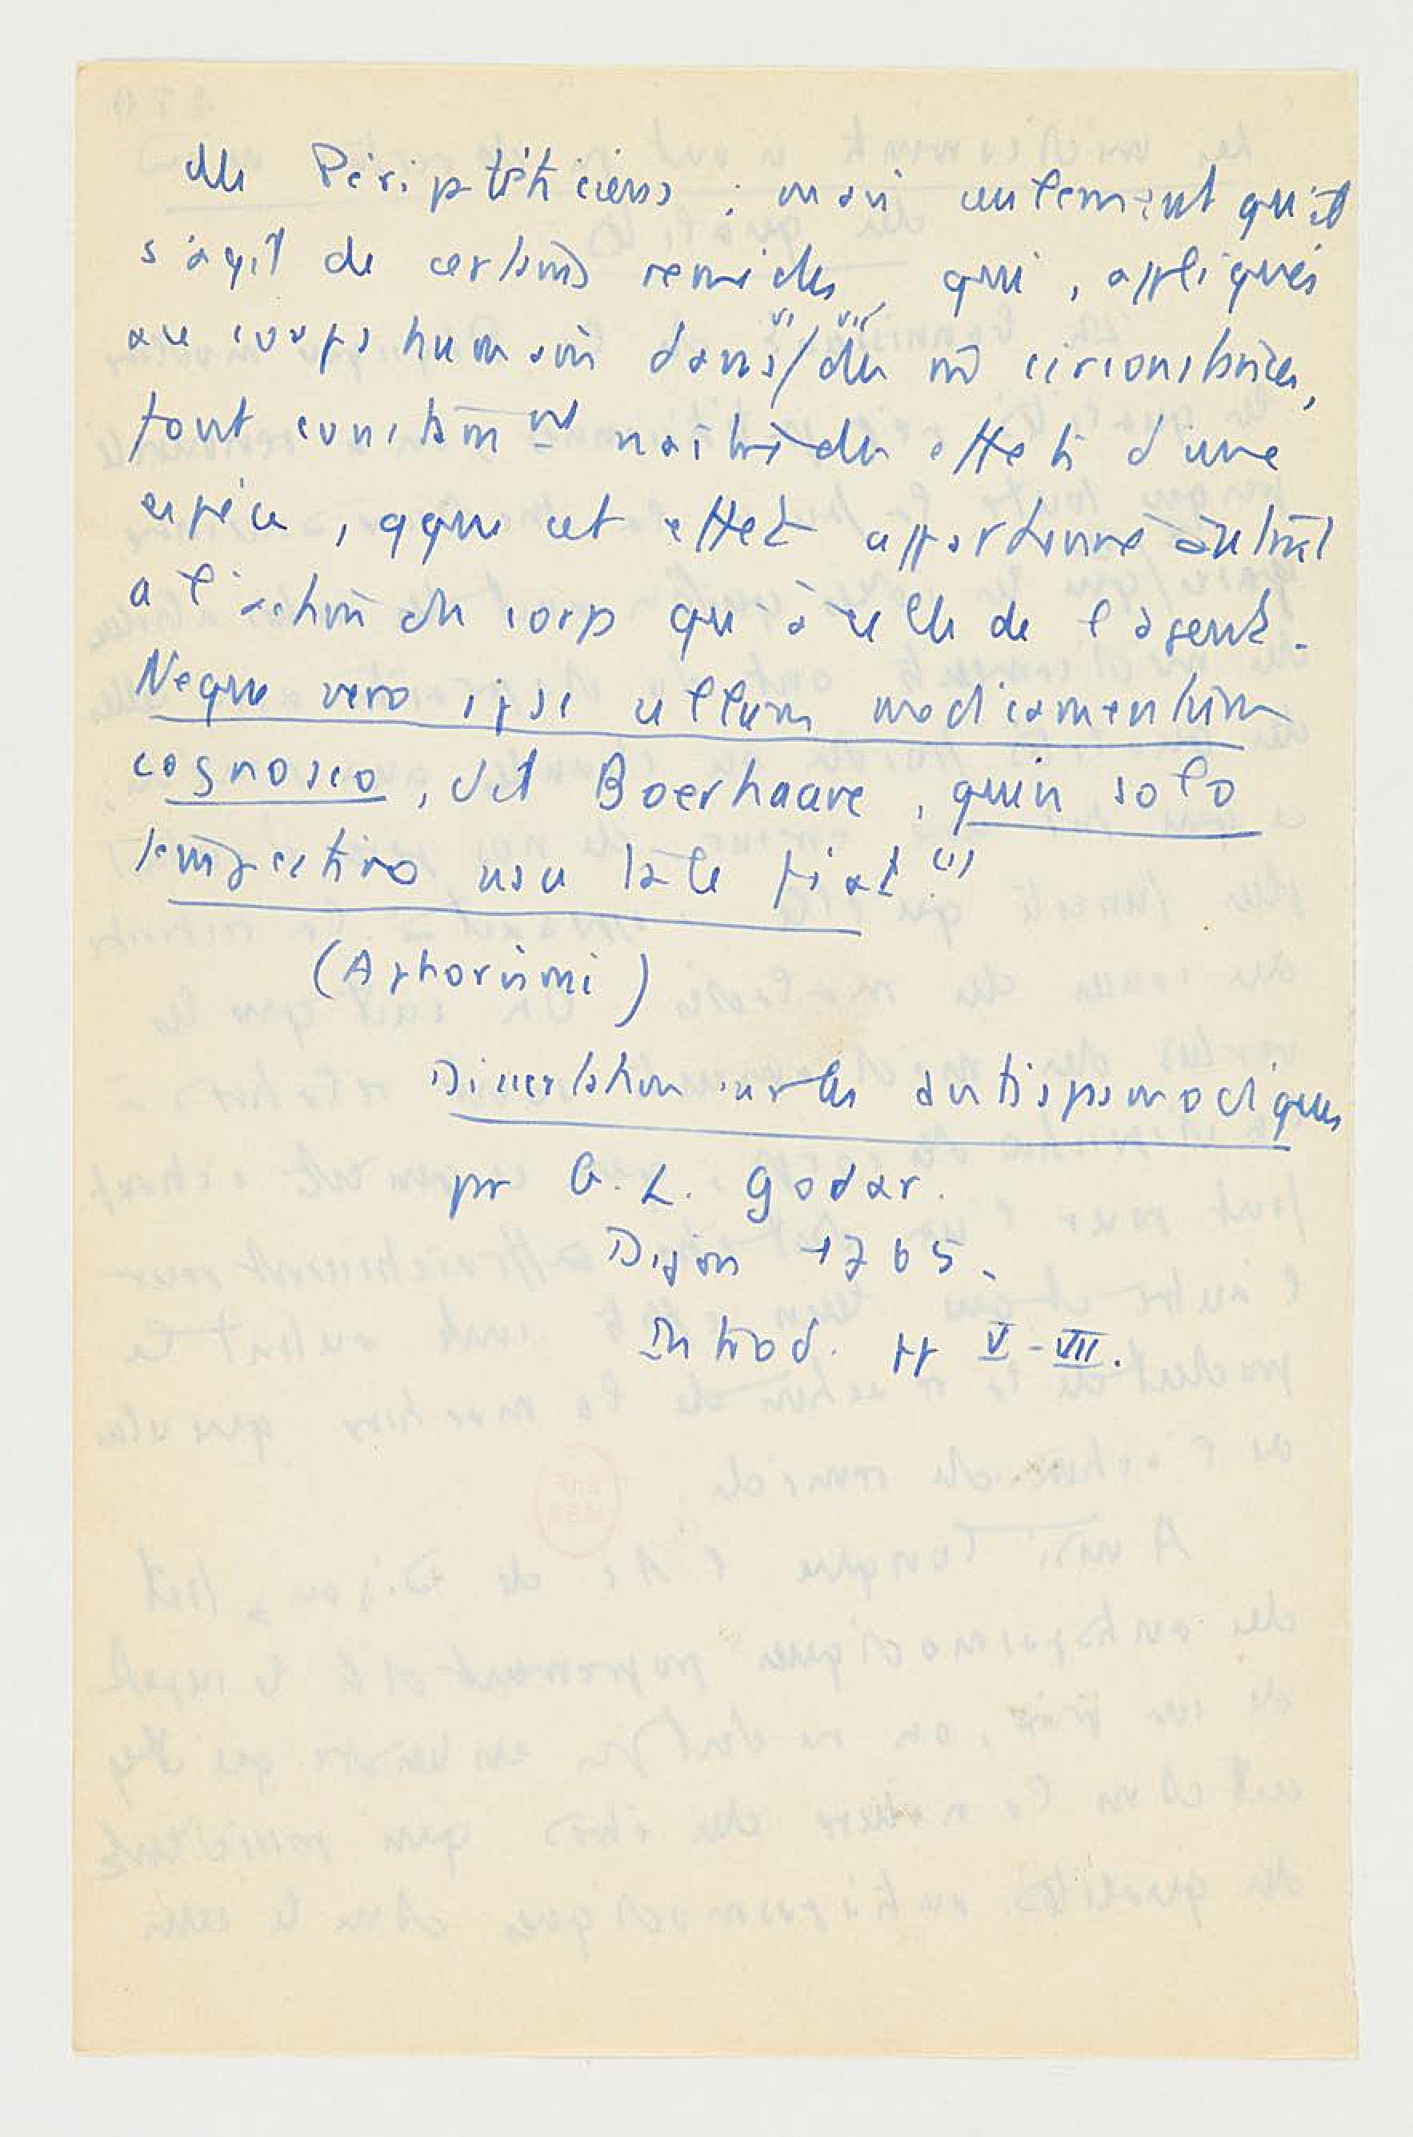 des Péripatéticiens ; mais seulement qu'il
s'agit de certains remèdes, qui, appliqués
au corps humain dans / des circonstances,
VI VII
font constamment naître des effets d'une
espèce, que cet effet appartienne autant
a l'action du corps qu'à celle de l'agent.
Neque vero ipse ullum medicamentum
cognosco, dit Boerhaave, quin solo
tempestivo usu tale fiat" (1)
(Aphorismi)
Dissertation sur les antispasmodiques
pr G. L. Godar.
Dijon 1765.
Introd. pp V-VII.